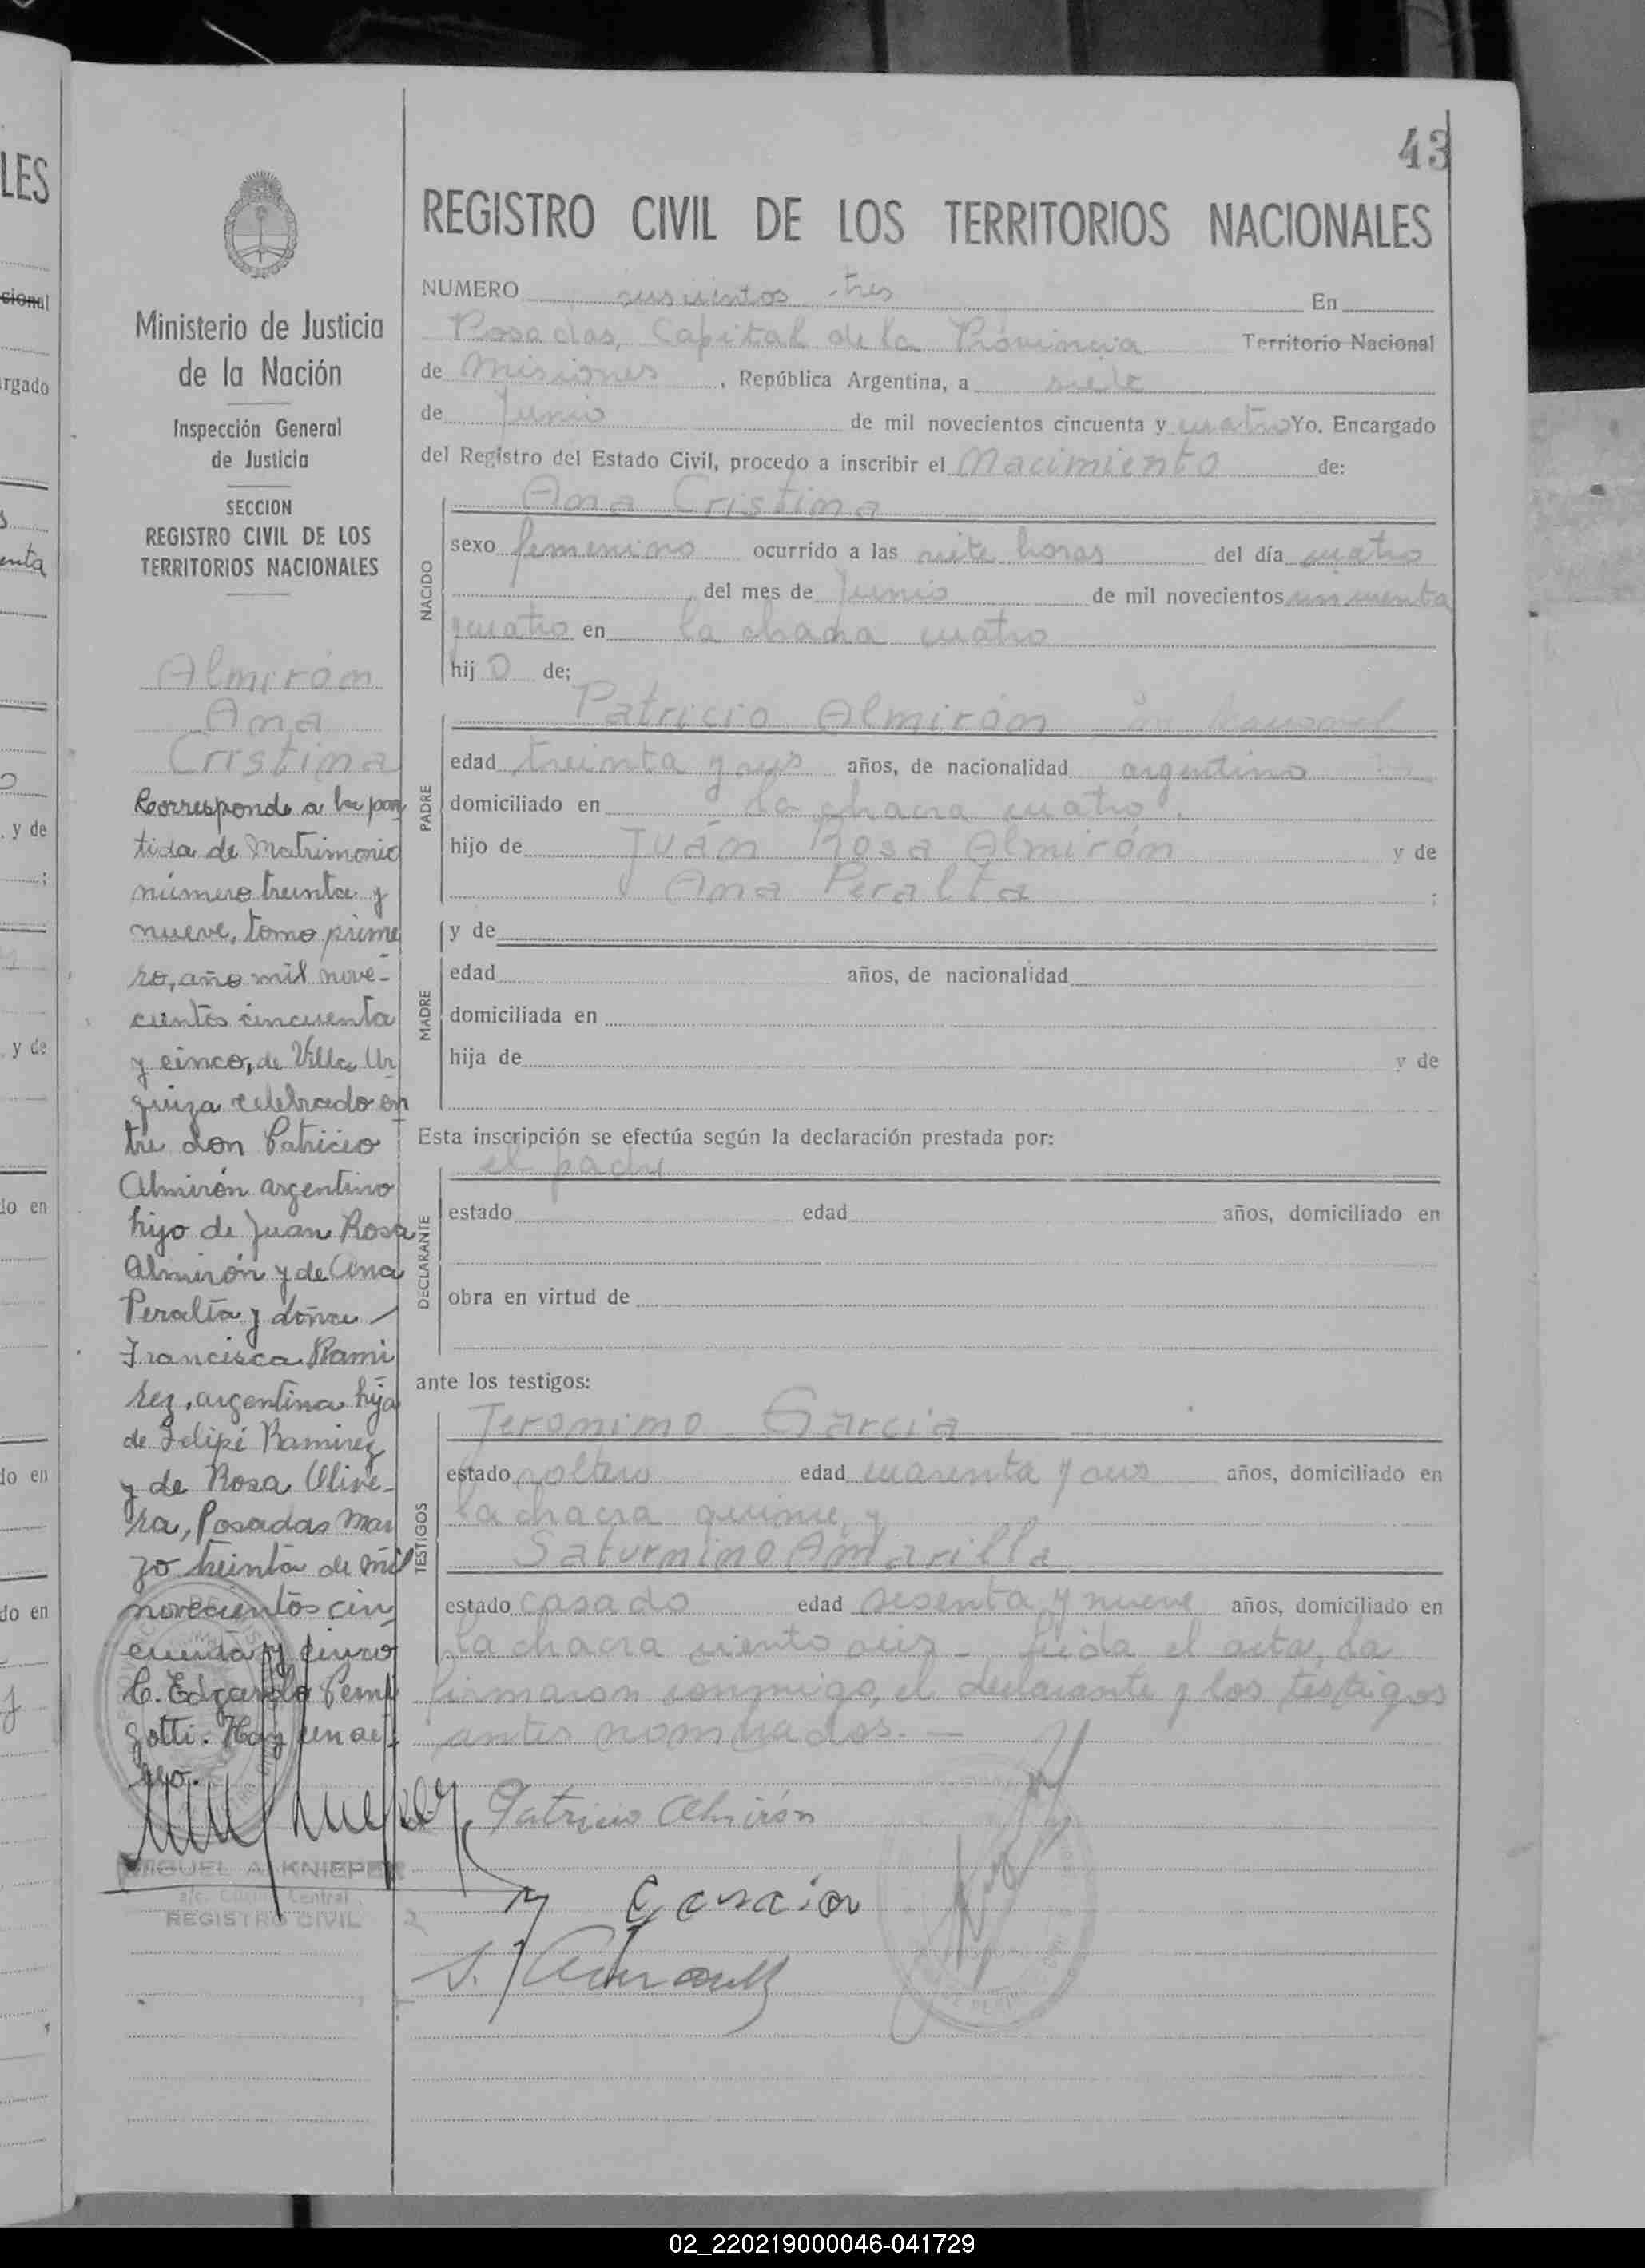 43
REGISTRO CIVIL DE LOS TERRITORIOS NACIONALES
Ministerio de Justicia
de la Nación
Inspección General
de Justicia
SECCION
REGISTRO CIVIL DE LOS
TERRITORIOS NACIONALES
Almirón
Ana
Cristina
Corresponde a la par
tida de Matrimonio
número treinta y
nueve, tomo prime
ro, año mil nove-
cientos cincuenta
y cinco, de Villa Ur
quiza celebrado en
tre don Patricio
Almirón argentino
hijo de Juan Rosa
Almirón y de Ana
Peralta y doña
Francisca Rami
rez, argentina hija
de Felipe Ramirez
y de Rosa Olive-
ra, Posadas mar
zo treinta de mil
novecientos cin
cuenta y cinco
C. Edgardo
Hay un se-
llo.
MIGUEL A. KNIEPER
a/c. Oficina Central
REGISTRO CIVIL
NUMERO seiscientos tres En
Posadas, Capital de la Provincia Territorio Nacional
de Misiones, República Argentina, a siete
de Junio de mil novecientos cincuenta y cuatro Yo. Encargado
del Registro del Estado Civil, procedo a inscribir el Nacimiento de:
NACIDO
Ana Cristina
sexo femenino ocurrido a las siete horas del día cuatro
del mes de Junio de mil novecientos cincuenta
y cuatro en la chacra cuatro
hij o de;
PADRE
Patricio Almirón
edad treinta y seis años, de nacionalidad argentino
domiciliado en la chacra cuatro.
hijo de Juán Rosa Almirón y de
Ana Peralta ;
MADRE
y de
edad años, de nacionalidad
domiciliada en
hija de y de
Esta inscripción se efectúa según la declaración prestada por:
DECLARANTE
el padre
estado edad años, domiciliado en
obra en virtud de
ante los testigos:
TESTIGOS
Jeronimo Garcia
estado soltero edad cuarenta y seis años, domiciliado en
la chacra quince, y
Saturnino Amarilla
estado casado edad sesenta y nueve años, domiciliado en
la chacra ciento seis - Leída el acta, la
firmaron conmigo, el declarante y los testigos
antes nombrados. —
Patricio Almirón
J Garcia
02_220219000046-041729